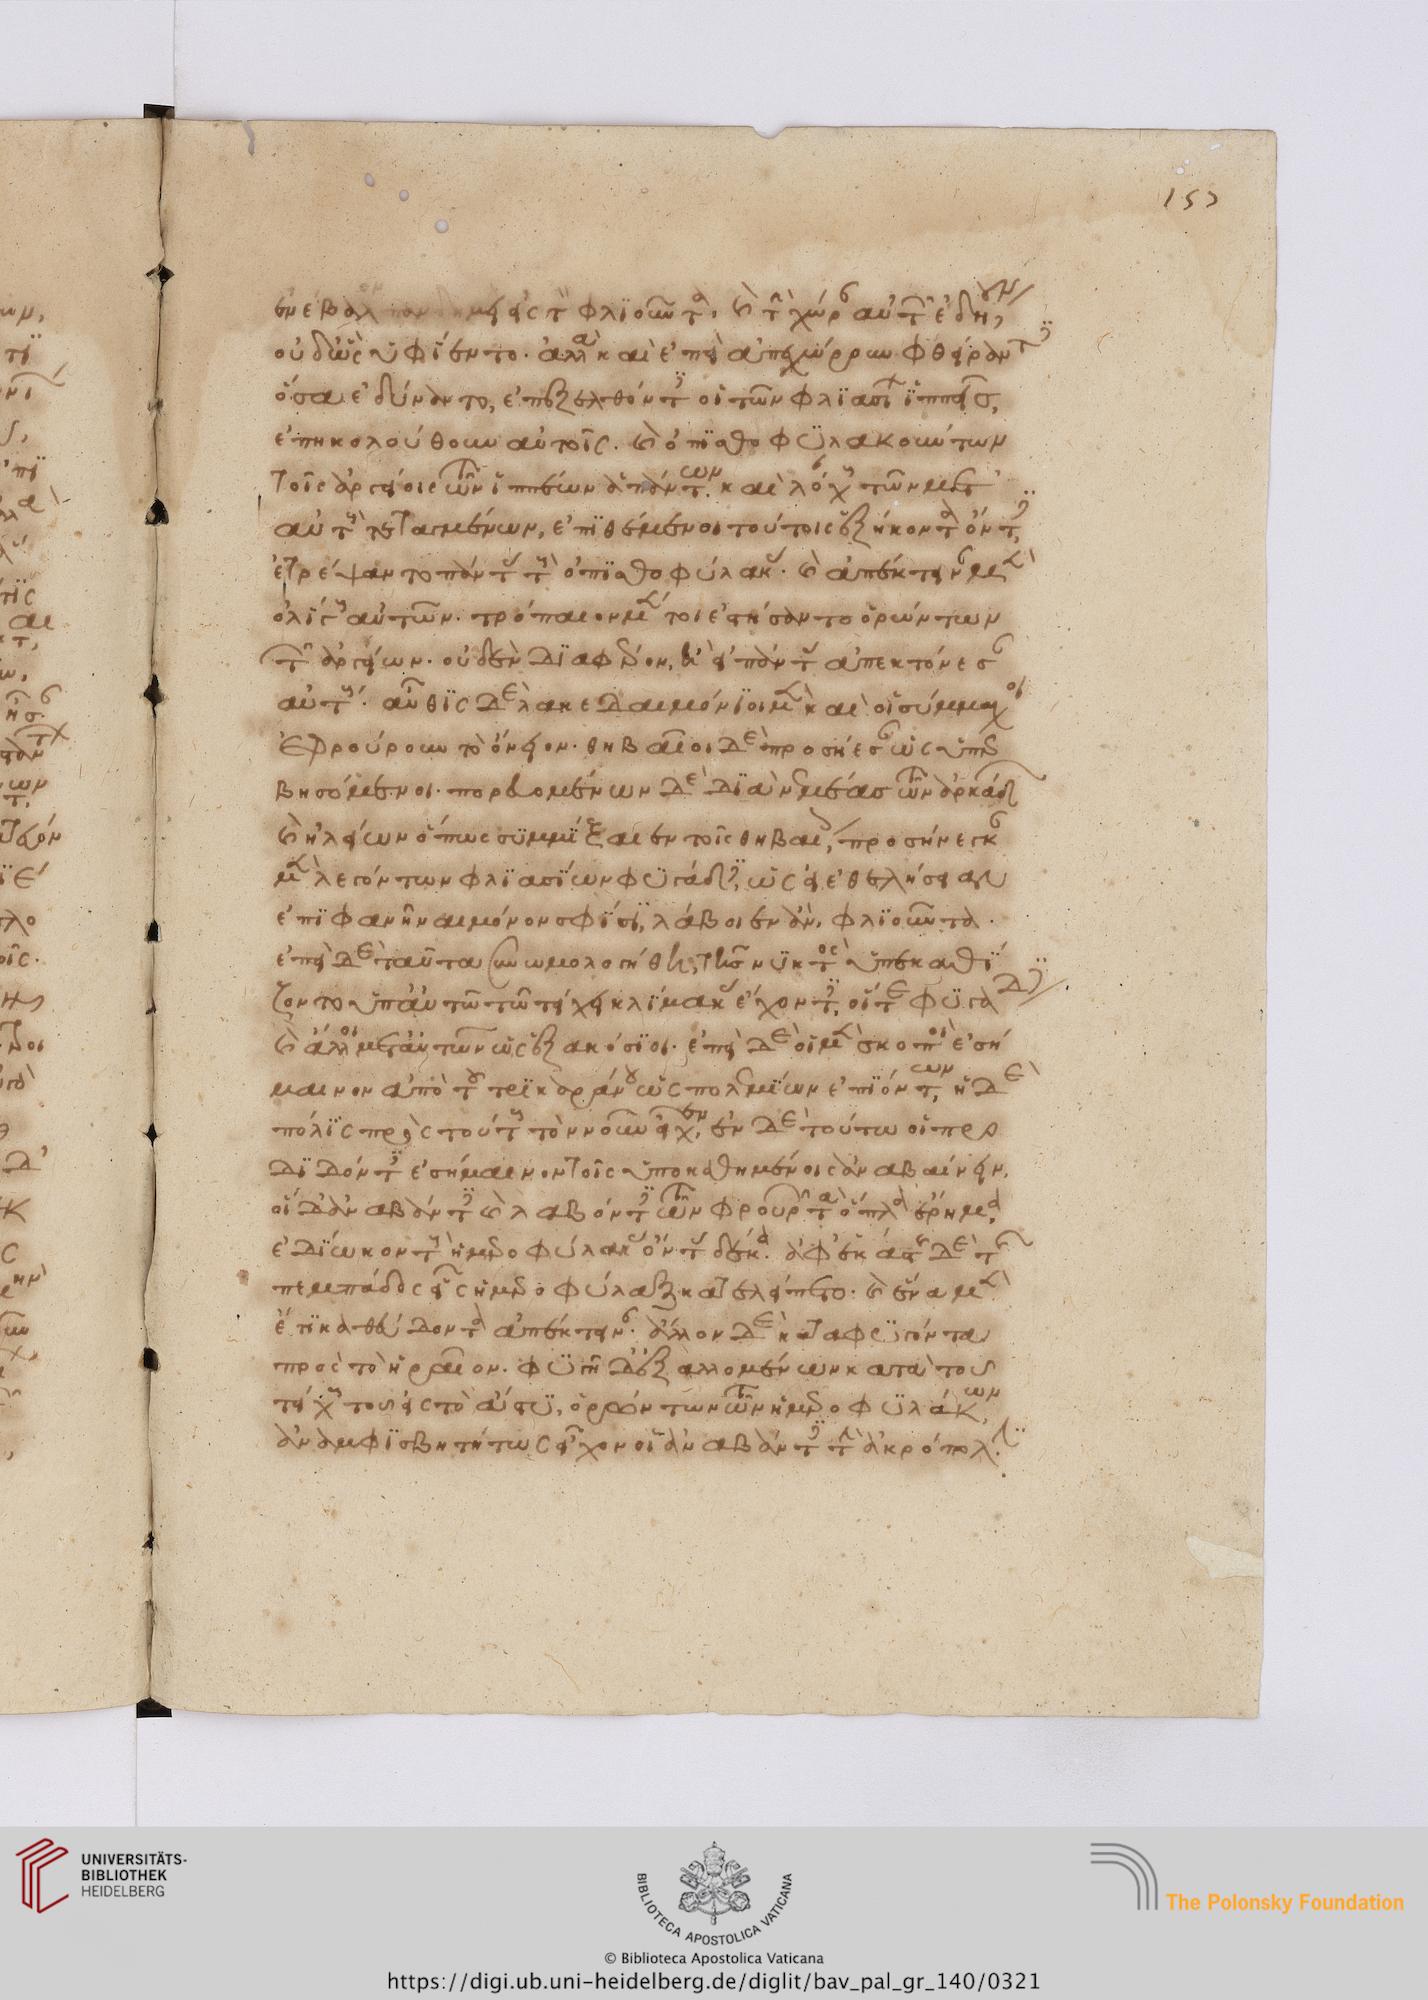 ἐνέβαλον πανδημεὶ εἰς τ Φλϊοῦντα, καὶ τὴν χώραν αὐτῶν ἐδήουν,
οὐδ' ὡς ὑφίεντο. ἀλλὰ καὶ ἐπεὶ ἀπεχώρρουν φθείραντες
ὅσα ἐδύναντο, ἐπεξελθόντες οἱ τῶν Φλϊασίων ἱππεῖς,
ἐπηκολούθουν αὐτοῖς. καὶ ὀπισθοφϋλακούντων
τοῖς ἀργείοις τῶν ἱππέων ἁπάντων καὶ λόχων τῶν μετ'
αὐτοὺς τεταγμένων, ἐπϊθέμενοι τούτοις ἑξήκοντα ὄντες,
ἐτρέψαντο πάντας τοὺς ὀπϊσθοφύλακας. καὶ ἀπέκτειναν μὲν
ὀλίγους αὐτῶν. τρόπαιον μέντοι ἐστήσαντο ὁρώντων
τῶν ἀργείων. οὐδὲν διάφορον, ἢ εἰ πάντας ἀπεκτόνεσαν
αὐτούς. αὖθϊς δὲ λακεδαιμόνϊοι μὲν καὶ οἱ σύμμαχοι
ἐφρούρουν τὸ ὄνειον. θηβαῖοι δὲ προσήεσαν ὡς ὑπερ
βησόμενοι. πορευομένων δὲ δϊὰ νεμέας τῶν ἀρκάδων
καὶ ἠλείων ὅπως σϋμμίξαιεν τοῖς θηβαίοις, προσήνεγκαν
μὲν λεγόντων φλϊασϊων φϋγάδες, ὡς εἰ ἐθελήσειαν
ἐπϊφανῆναι μόνον σφίσϊ, λάβοιεν ἂν, φλϊοῦντα.
ἐπεὶ δὲ ταῦτα συνωμολογήθη, τῆς νϋκτὸς ὑπεκαθϊ
ζοντο ὑπ' αὐτῶ τῶ τείχει κλϊμακας ἔχοντες, οἵ τε φϋγάδες
καὶ ἄλλοι μετ' αὐτῶν ὡς ἑξακόσϊοι. ἐπεὶ δὲ οἱ μὲν σκοποὶ ἐσή
μαινον ἀπὸ τοῦ τρϊκαράνου ὡς πολεμϊων ἐπϊόντων, ἡ δὲ
πόλϊς πρὸς τούτους τὸν νοῦν εἶχεν, ἐν δὲ τούτω οἱ προ
δϊδόντες ἐσήμαινον τοῖς ὑποκαθημένοις ἀναβαίνειν.
οἱ δ' ἀναβάντες καὶ λαβόντες τῶν φρουρῶν τὰ ὅπλα ἔρημα,
ἐδϊωκον τοὺς ἡμεροφύλακας ὄντας δέκα. ἀφ' ἑκάστης δὲ τῆς
πεμπάδος εἷς ἡμεροφύλαξ κατελείπετο. καὶ ἕνα μὲν
ἔτϊ καθεύδοντα ἀπέκτειναν. ἄλλον δὲ καταφϋγόντα
πρὸς τὸ ἡραῖον. φϋγῆ δ' ἐξαλλομένων κατὰ τοῦ
τείχους τοῦ εἰς τὸ ἄστϋ, ὁρώντων τῶν ἡμεροφϋλάκων,
ἀναμφϊσβητήτως εἶχον οἱ ἀναβάντες τὴν ἀκρόπολιν.
UNIVERSITÄTS-
BIBLIOTHEK
HEIDELBERG
BIBLIOTECA APOSTOLICA VATICANA
The Polonsky Foundation
© Biblioteca Apostolica Vaticana
https://digi.ub.uni-heidelberg.de/diglit/bav_pal_gr_140/0321